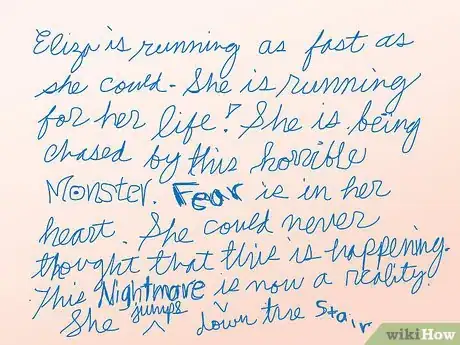 Eliza is running as fast as
she could. She is running
for her life! She is being
chased by this horrible
Monster. Fear is in her
heart. She could never
thought that this is happening.
This Nightmare is now a reality!
She jumps down the Stair
wikiHow